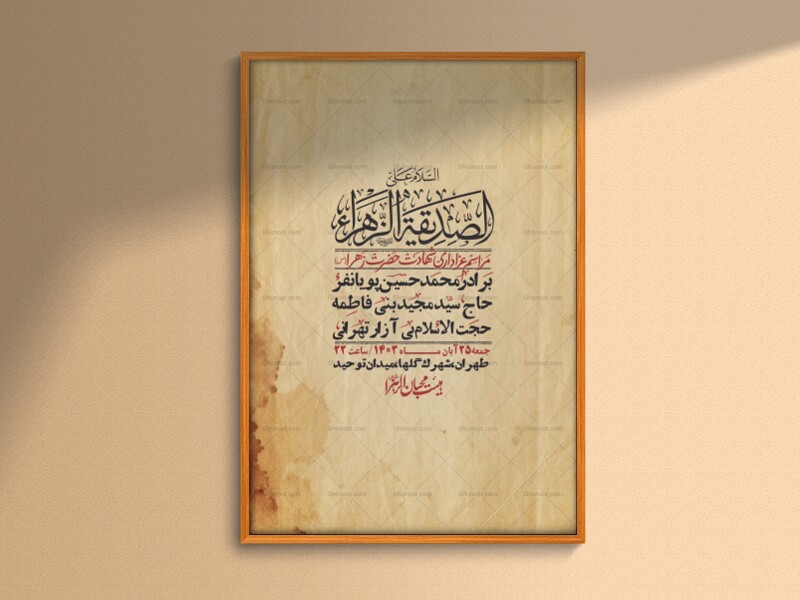 السلام علی
الصدیقة الزهراء
مراسم عزاداری شهادت حضرت زهرا (س)
برادر محمدحسین پویانفر
حاج سید مجید بنی فاطمه
حجت الاسلام بی آزار تهرانی
جمعه ۲۵ آبان مـــاه ۱۴۰۳ / ساعت ۲۲
طهران، شهرک گلها، میدان توحید
هیئت محبان الزهرا
Ghonoot.com